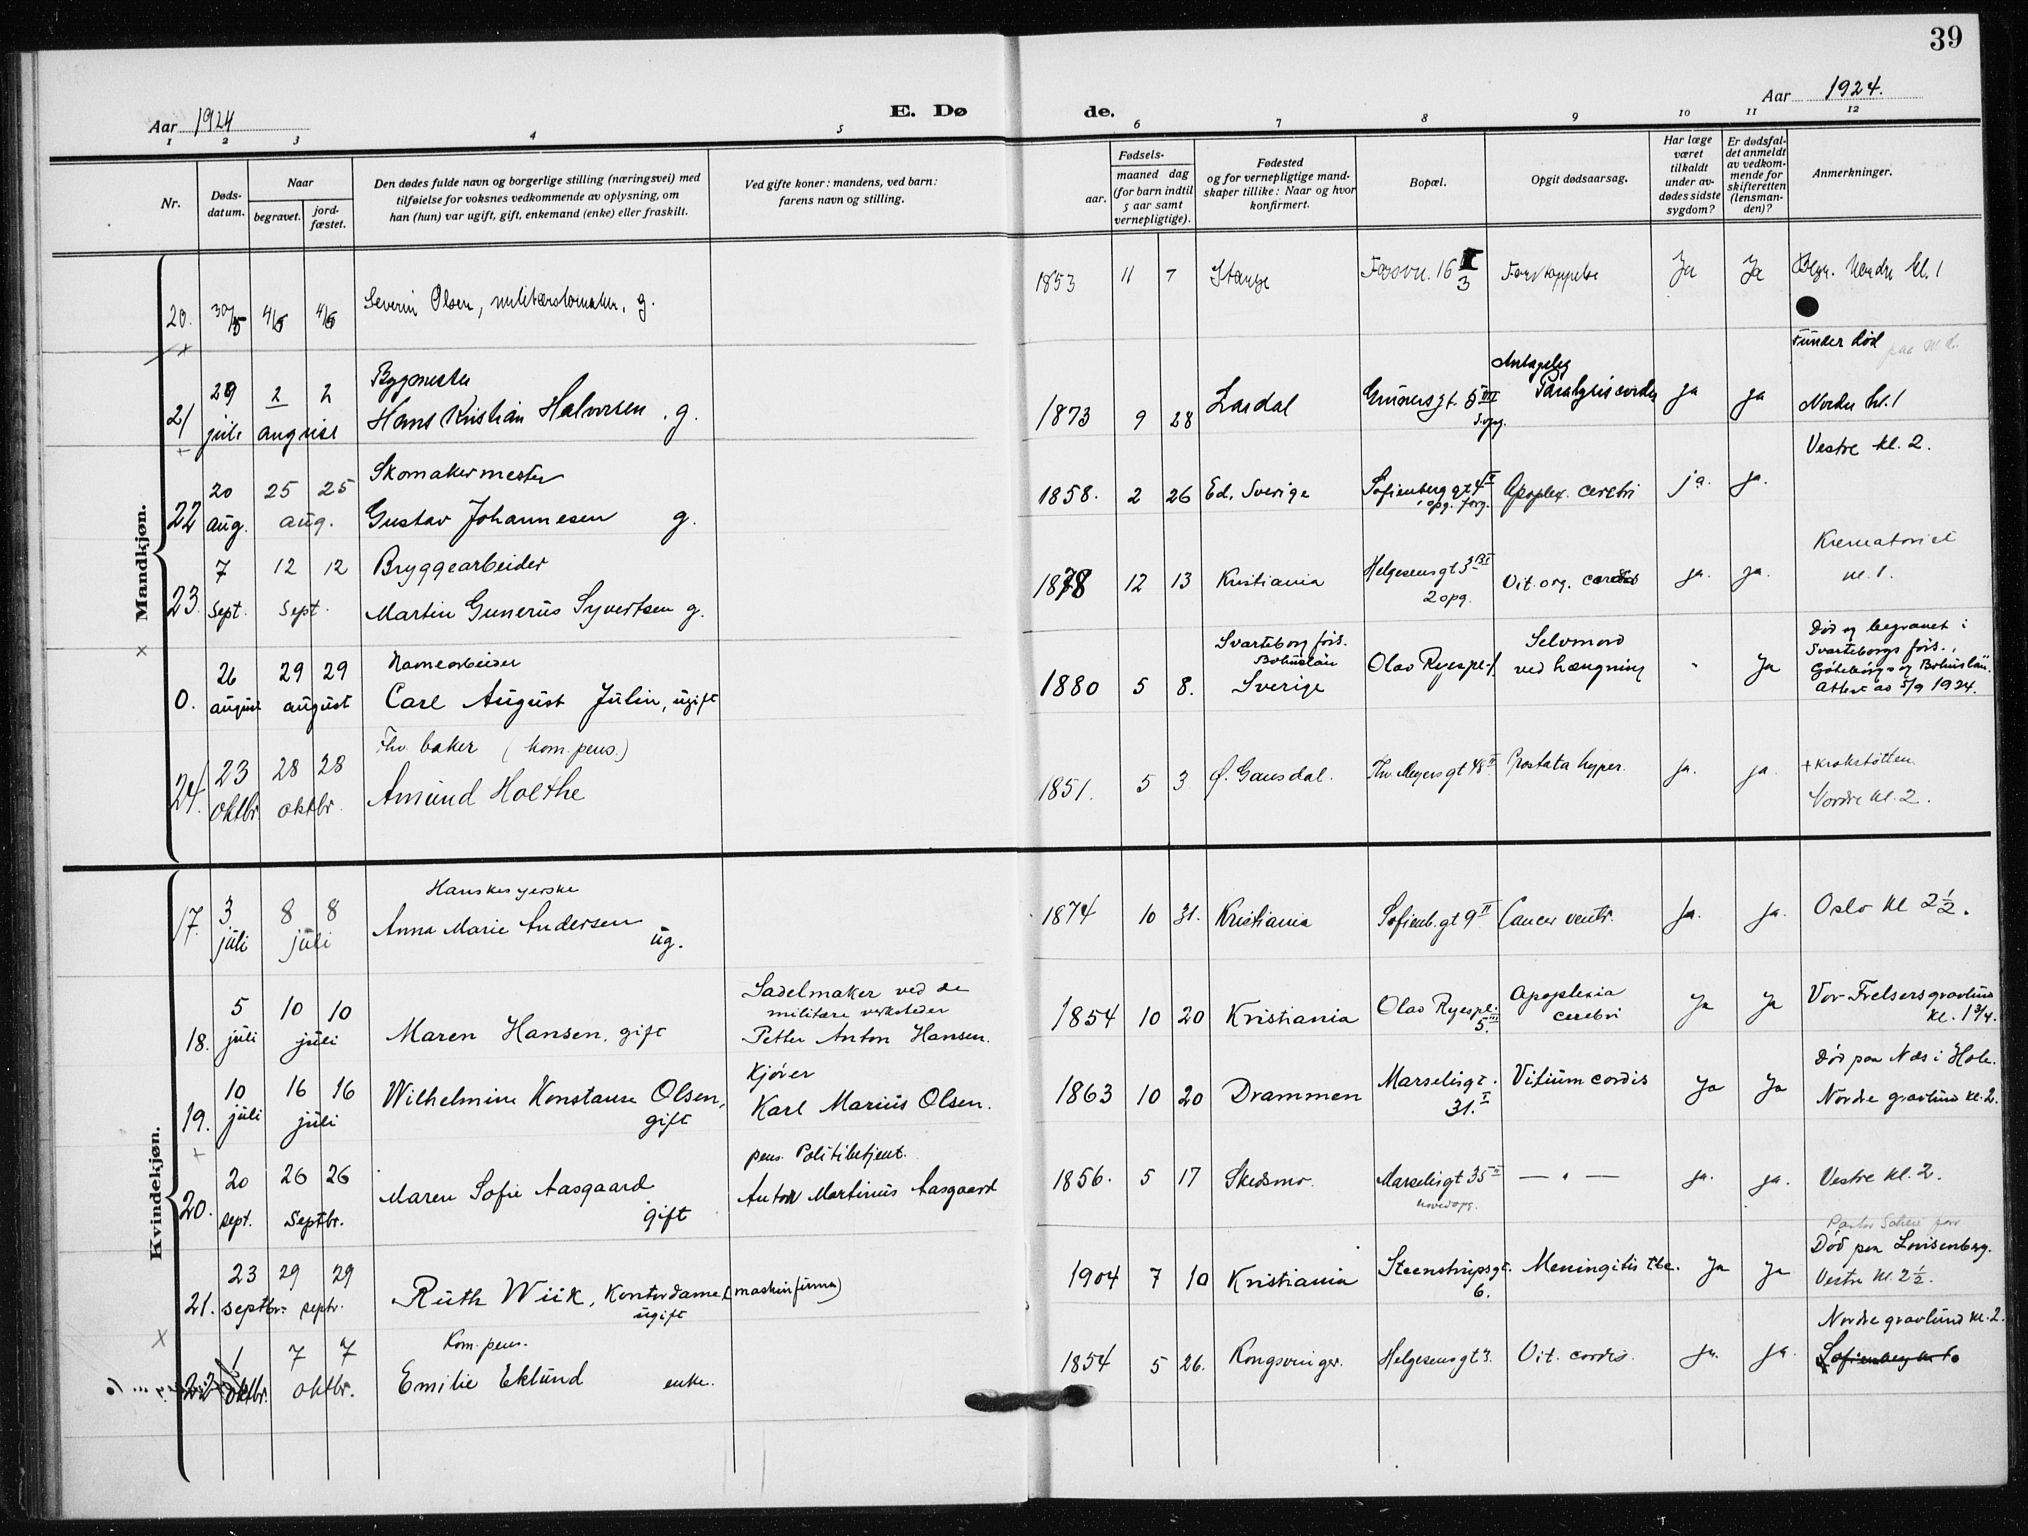 39
Aar 1924
E. Dø de.
Aar 1924.
1 2 3 4 5 6 7 8 9 10 11 12
Nr.
Døds-
datum.
Naar
begravet.
jord-
fæstet.
Den dødes fulde navn og borgerlige stilling (næringsvei) med
tilføielse for voksnes vedkommende av oplysning, om
han (hun) var ugift, gift, enkemand (enke) eller fraskilt.
Ved gifte koner: mandens, ved barn:
farens navn og stilling.
Fødsels-
aar.
maaned dag
(for barn indtil
5 aar samt
vernepligtige).
Fødested
og for vernepligtige mand-
skaper tillike: Naar og hvor
konfirmert.
Bopæl.
Opgit dødsaarsag.
Har læge
været
tilkaldt
under av-
dødes sidste
sygdom?
Er dødsfal-
det anmeldt
av vedkom-
mende for
skifteretten
(lensman-
den)?
Anmerkninger.
Mandkjøn.
20. 30/5 4/6 4/6 Severin Olsen, g. 1853 11 7 Stange Fossvn. 16 3 Ja Ja Begr. Nordre kl. 1
Funden død
Bygmester Antagelig
21 29 juli 2 2 august Hans Kristian Halvorsen . g. 1873 9 28 Lardal Grünersgt. 5 III Paralysis cordis ja ja Nordre kl. 1
Vestre kl. 2.
Skomakermester
22 20 aug. 25 25 aug. Gustav Johannesen g. 1858. 2 26 Ed, Sverige Sofienberggt 4 II Apoplex. cerebri ja. ja.
Krematoriet
kl. 1.
Bryggearbeider
23. 7 sept. 12 12 sept. Martin Gunerius Syvertsen g. 1878 12 13 Kristiania Helgesensgt 3 III 2 opg. Vit. org. cordis ja. ja.
Død og begravet i
Svarteborgs förs.,
Göteborgs og Bohuslän.
Attest av 5/9 1924.
Havnearbeider Svarteborg förs.
Bohuslän
Sverige
0. 26 august 29 29 august Carl August Julin, ugift 1880 5 8. Olav Ryespl. 1. Selvmord
ved hængning - Ja
Fhv. baker (kom. pens.)
24. 23 oktbr. 28 28 oktbr. Amund Holthe 1851. 5 3 Ø. Gausdal. Thv Meyersgt 48 II Prostata hyper. ja. ja. + Krohstøtten
Nordre kl. 2.
Kvindekjøn.
Hanskesyerske
17. 3 juli 8 8 juli Anna Marie Andersen ug. 1874 10 31. Kristiania Sofienb.gt 9 II Cancer ventr. Ja. ja. Oslo kl 2 1/2.
18. 5 juli 10 10 juli Maren Hansen, gift Sadelmaker ved de
militære verksteder
Petter Anton Hansen. 1854 10 20 Kristiania Olav Ryespl. 5. III Apoplexia
cerebri Ja Ja Vor Frelsers gravlund
kl. 1 3/4.
19. 10 juli 16 16 juli Wilhelmine Konstanse Olsen, gift Kjører
Karl Marius Olsen. 1863 10 20 Drammen Marselisgt. 31. I Vitium cordis Ja Ja Død paa Næs i Hole.
Nordre gravlund kl. 2.
20. 20 sept. 26 26 septbr. Maren Sofie Aasgaard gift pens. Politibetjent.
Anton Martinius Aasgaard 1856. 5 17 Skedsmo. Marselisgt 35 II hovedopg. — " — ja. ja. Vestre kl. 2.
21. 23 septbr. 29 29 septr. Ruth Wiik, Kontordame (maskinfirma) ugift 1904 7 10 Kristiania Steenstrupsgt. 6. Meningitis tbc. Ja Ja Død paa Lovisenberg.
Vestre kl. 2 1/2.
Kom. pens.
22 1 oktbr. 7 7 oktbr. Emilie Eklund enke. 1854 5 26. Kongsvinger. Helgesensgt 3. Vit. cordis. ja. ja. Nordre gravlund kl. 2.